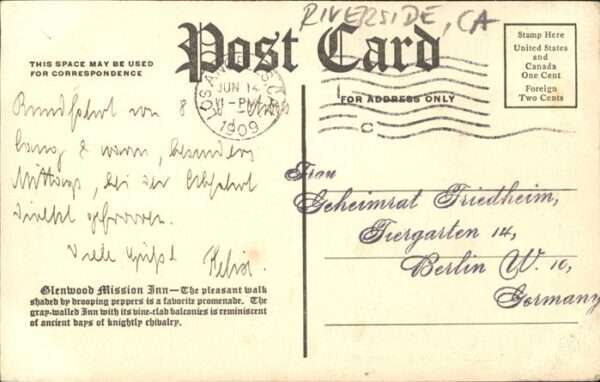 RIVERSIDE, CA
Post Card
THIS SPACE MAY BE USED
FOR CORRESPONDENCE
FOR ADDRESS ONLY
Stamp Here
United States
and
Canada
One Cent
Foreign
Two Cents
LOS ANGELES, CAL.
JUN 14
11-PM
1909
Rundfahrt von 8
warm, besonders
Mittags, bei der
direkt gefroren.
Viele Grüße Felix.
Frau
Geheimrat Friedheim,
Tiergarten 14,
Berlin W. 10,
Germany
Glenwood Mission Inn—The pleasant walk
shaded by drooping peppers is a favorite promenade. The
gray-walled Inn with its vine-clad balconies is reminiscent
of ancient days of knightly chivalry.